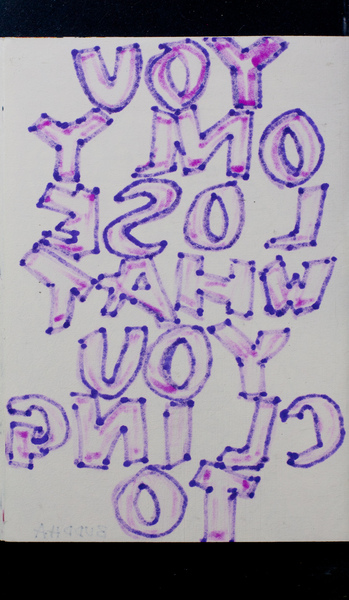 YOU
ONLY
LOSE
WHAT
YOU
CLING
TO